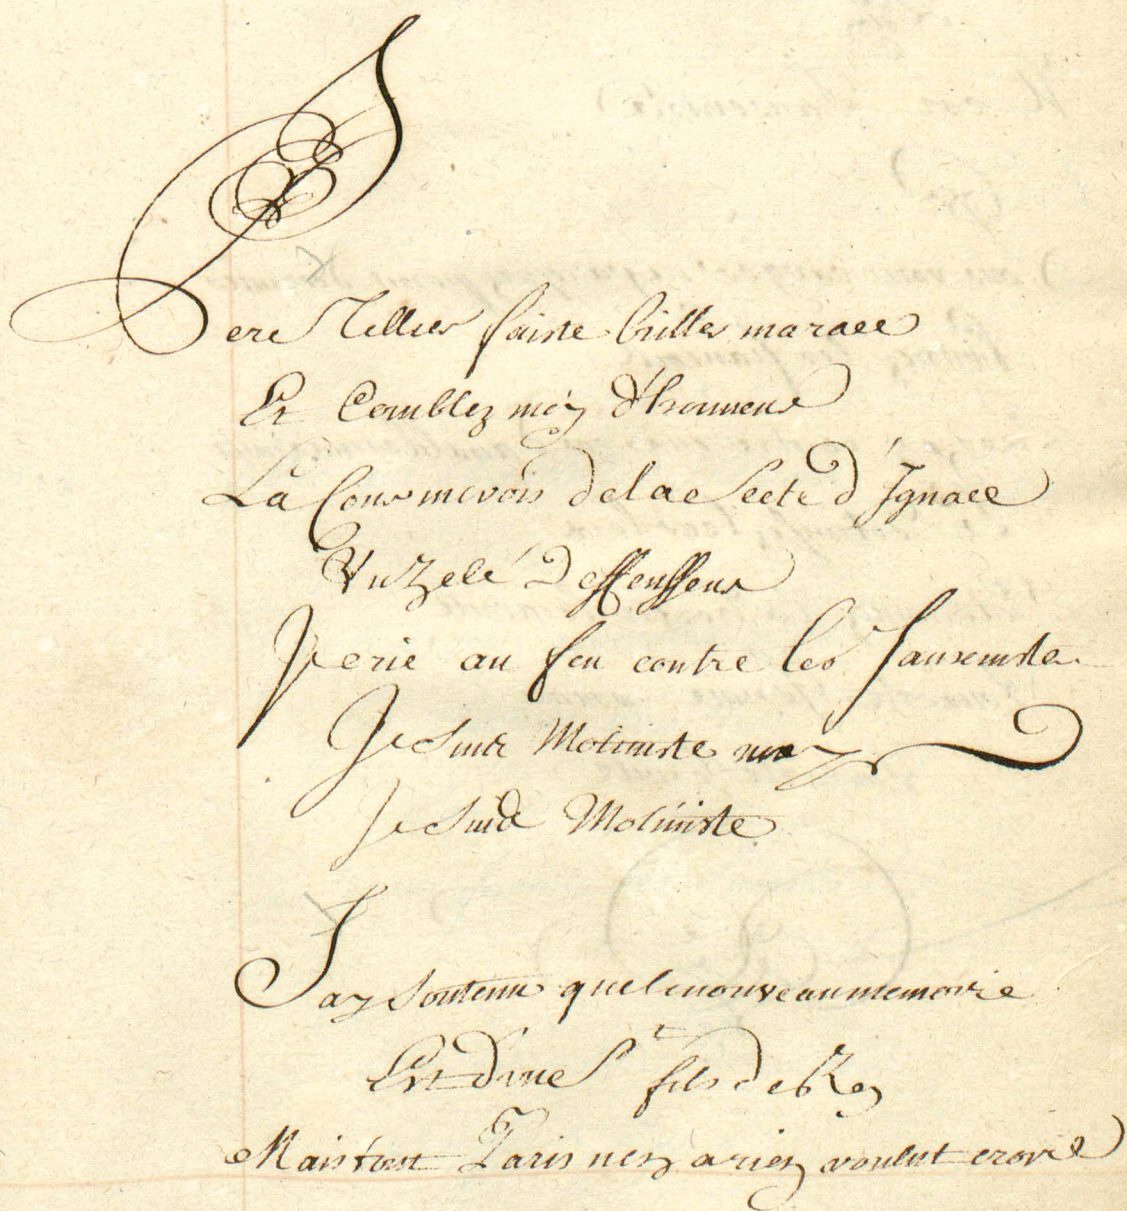 Pere Tellier faiste briller ma race
Et Comblez moy d'honneur
La Cour me vois de lae Secte d'Ignace
Vn Zelé Deffensseur
Je crie au feu contre les Janseniste
Je Suis Moliniste moy
Je Suis Moliniste
Jay Soutenu que le nouveau memoire
Est d'une St fils de Roy
Mais tout Paris n'en a rien voulut croire